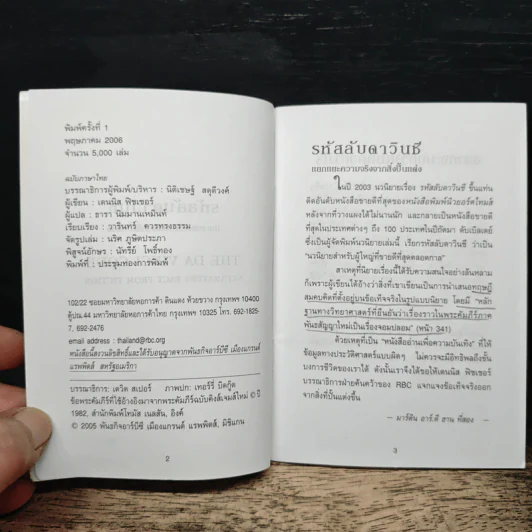 พิมพ์ครั้งที่ 1
พฤษภาคม 2006
จำนวน 5,000 เล่ม
ฉบับภาษาไทย
บรรณาธิการผู้พิมพ์/บริหาร : นิติเชษฐ์ สดุดีวงศ์
ผู้เขียน : เดนนิส ฟิชเชอร์
ผู้แปล : ธารา นิมมานเหมินท์
เรียบเรียง : วารินทร์ ควรทรงธรรม
จัดรูปเล่ม : นริศ ภูษิตประภา
พิสูจน์อักษร : นัทรีย์ โพธิ์ทอง
พิมพ์ที่ : ประชุมทองการพิมพ์
102/22 ซอยมหาวิทยาลัยหอการค้า ดินแดง ห้วยขวาง กรุงเทพฯ 10400
ตู้ปณ.44 มหาวิทยาลัยหอการค้าไทย กรุงเทพฯ 10325 โทร. 692-1825-
7, 692-2476
email address : thailand@rbc.org
หนังสือนี้สงวนลิขสิทธิ์และได้รับอนุญาตจากพันธกิจอาร์บีซี เมืองแกรนด์
แรพพิดส์ สหรัฐอเมริกา
บรรณาธิการ: เดวิด สเปอร์ ภาพปก: เทอร์รี่ บิดกู๊ด
ข้อพระคัมภีร์ที่ใช้อ้างอิงมาจากพระคัมภีร์ฉบับคิงส์เจมส์ใหม่ © ปี
1982, สำนักพิมพ์โทมัส เนลสัน, อิงค์
© 2005 พันธกิจอาร์บีซี เมืองแกรนด์ แรพพิดส์, มิชิแกน
2
รหัสลับดาวินชี
แยกแยะความจริงจากสิ่งปั้นแต่ง
ในปี 2003 นวนิยายเรื่อง รหัสลับดาวินชี ขึ้นแท่น
ติดอันดับหนังสือขายดีที่สุดของหนังสือพิมพ์นิวยอร์คไทมส์
หลังจากที่วางแผงได้ไม่นานนัก และกลายเป็นหนังสือขายดี
ที่สุดในประเทศต่างๆ ถึง 100 ประเทศในปีถัดมา ดับเบิลเดย์
ซึ่งเป็นผู้จัดพิมพ์นวนิยายเล่มนี้ เรียกรหัสลับดาวินชี ว่าเป็น
"นวนิยายสำหรับผู้ใหญ่ที่ขายดีที่สุดตลอดกาล"
สาเหตุที่นิยายเรื่องนี้ได้รับความสนใจอย่างล้นหลาม
ก็เพราะผู้เขียนได้อ้างว่าสิ่งที่เขาเขียนเป็นการนำเสนอทฤษฎี
สมคบคิดที่ตั้งอยู่บนข้อเท็จจริงในรูปแบบนิยาย โดยมี "หลัก
ฐานทางวิทยาศาสตร์ที่ยืนยันว่าเรื่องราวในพระคัมภีร์ภาค
พันธสัญญาใหม่เป็นเรื่องจอมปลอม" (หน้า 341)
ด้วยเหตุที่เป็น "หนังสืออ่านเพื่อความบันเทิง" ที่ให้
ข้อมูลทางประวัติศาสตร์แบบผิดๆ ไม่ควรจะมีอิทธิพลถึงขั้น
บงการชีวิตของเราได้ ดังนั้นเราจึงได้ขอให้เดนนิส ฟิชเชอร์
บรรณาธิการฝ่ายค้นคว้าของ RBC แจกแจงข้อเท็จจริงออก
จากสิ่งที่ปั้นแต่งขึ้น
— มาร์ติน อาร์.ดี ฮาน ที่สอง
3